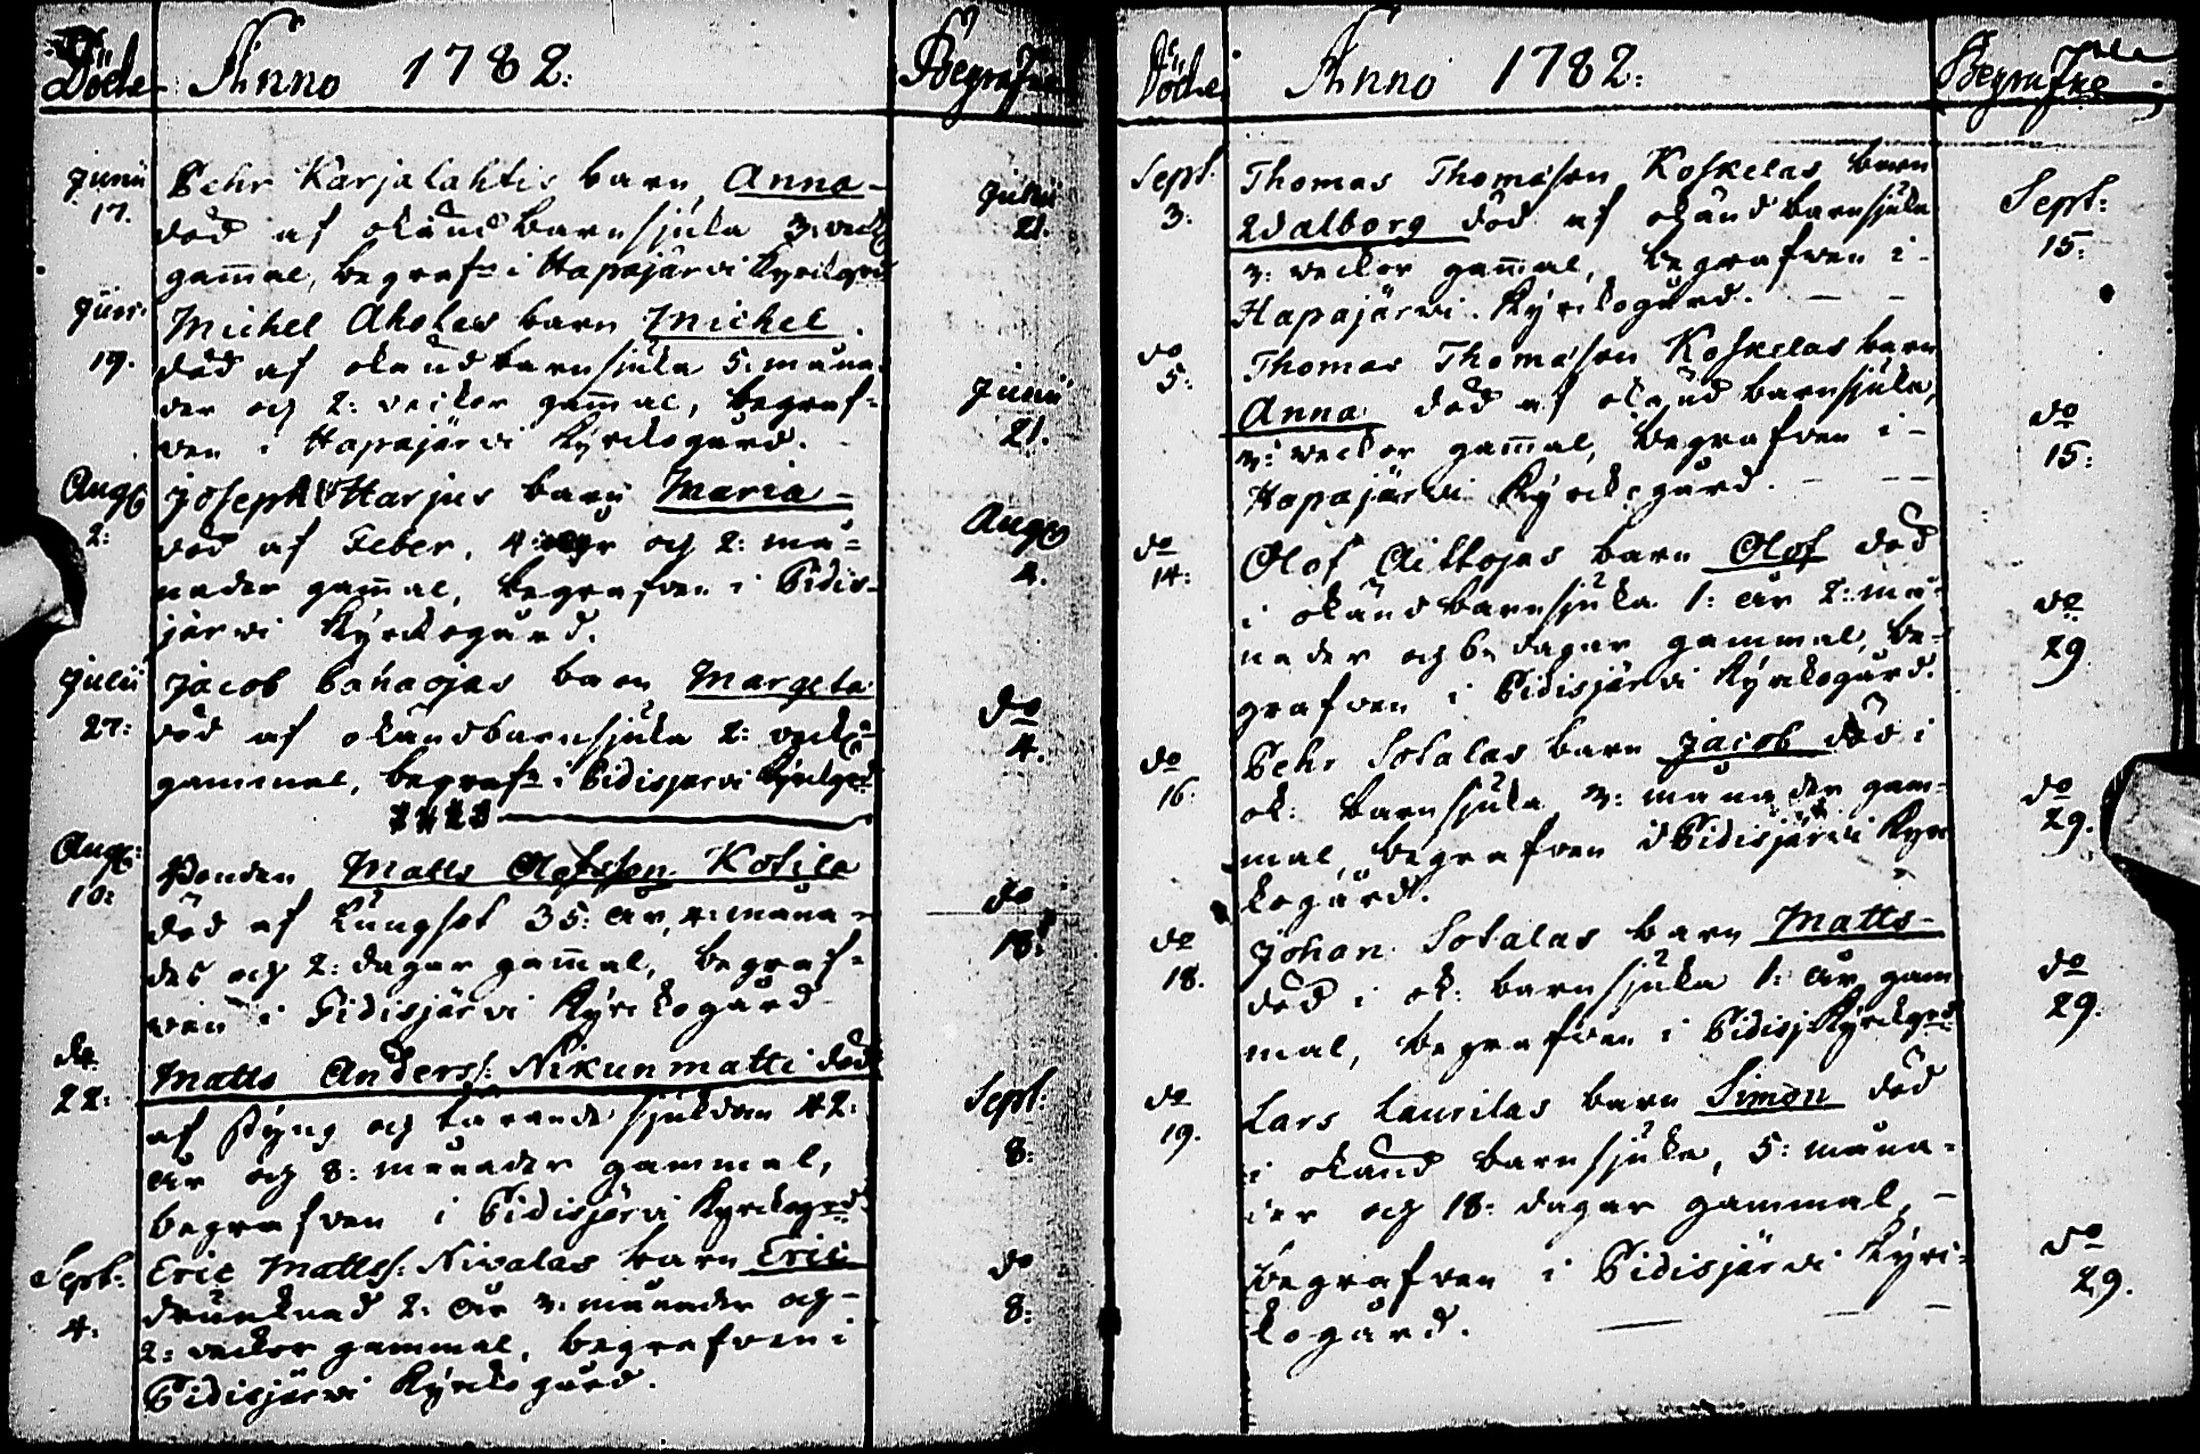 Döde Anno 1782: Begrafne
Junii Pehr Karjalahtis barn Anna - Junii
17. död af okänd barnsjuka 3: veck 21.
gamal, begrafn i Hapajärvi Kyrckogrd
Jun: Michel Aholas barn Michel.
19. död af okänd barnsjuka 5. måna-
der och 2: veckor gamal, begraf= Junii
ven i Hapajärvi Kyrckogård. 21.
Aug Joseph Harjus barn Maria -
2: död af Feber, 4: år och 2: må= Aug
nader gamal, begrafven i Pidis- 4.
järvi Kyrckogård.
Julii Jacob barn Margeta
27: död af okändbarnsjuka 2: veck do
gammal, begrafn i Pidisjärvi Kyrckgrd 4.
Aug: Bonden Matts Olofsson Kotila
10: död af Lungsot 35: år, 4: måna- do
der och 2: dagar gamal, begraf= 18:
ven i Pidisjärvi Kyrckogård
do Matts Anderss: Nikunmatti död
22: af styng och tärande sjukdom 42: Sept:
år och 8: månader gammal, 8:
begrafven i Pidisjärvi Kyrckogrd
Sept: Eric Mattss: Nivalas barn Eric do
4. drunknad 2: år 3: månader och - 8:
2: veckor gammal, begrafven i
Pidisjärvi Kyrckogård.
Döde Anno 1782: Begrafne
Sept. Thomas Thomasson Koskelas barn Sept:
3: Walborg död af okänd barnsjuka 15:
3: veckor gamal, begrafven i -
Hapajärvi Kyrckogård. - -
do Thomas Thomasson Koskelas barn
5: Anna död af okänd barnsjuka, do
3: veckor gamal, begrafven i - 15:
Hapajärvi Kyrckogård. - - -
do Olof Aittojas barn Olof död
14: i okänd barnsjuka 1: år 2: må- do
nader och 6. dagar gammal, be- 29.
grafven i Pidisjärvi Kyrckogård.
do Pehr Sotalas barn Jacob död i
16. ok: barnsjuka 3: månader gam- do
mal, begrafven i Pidisjärvi Kyrc 29.
kogård.
do Johan Sotalas barn Matts - do
18. död i ok: barnsjuka 1: år gam 29.
mal, begrafven i Pidisj: Kyrckgrd
do Lars Laurilas barn Simon död
19. i okänd barnsjuka, 5: måna-
der och 18: dagar gammal, -
begrafven i Pidisjärvi Kyrc= do
kogård. - - - 29.